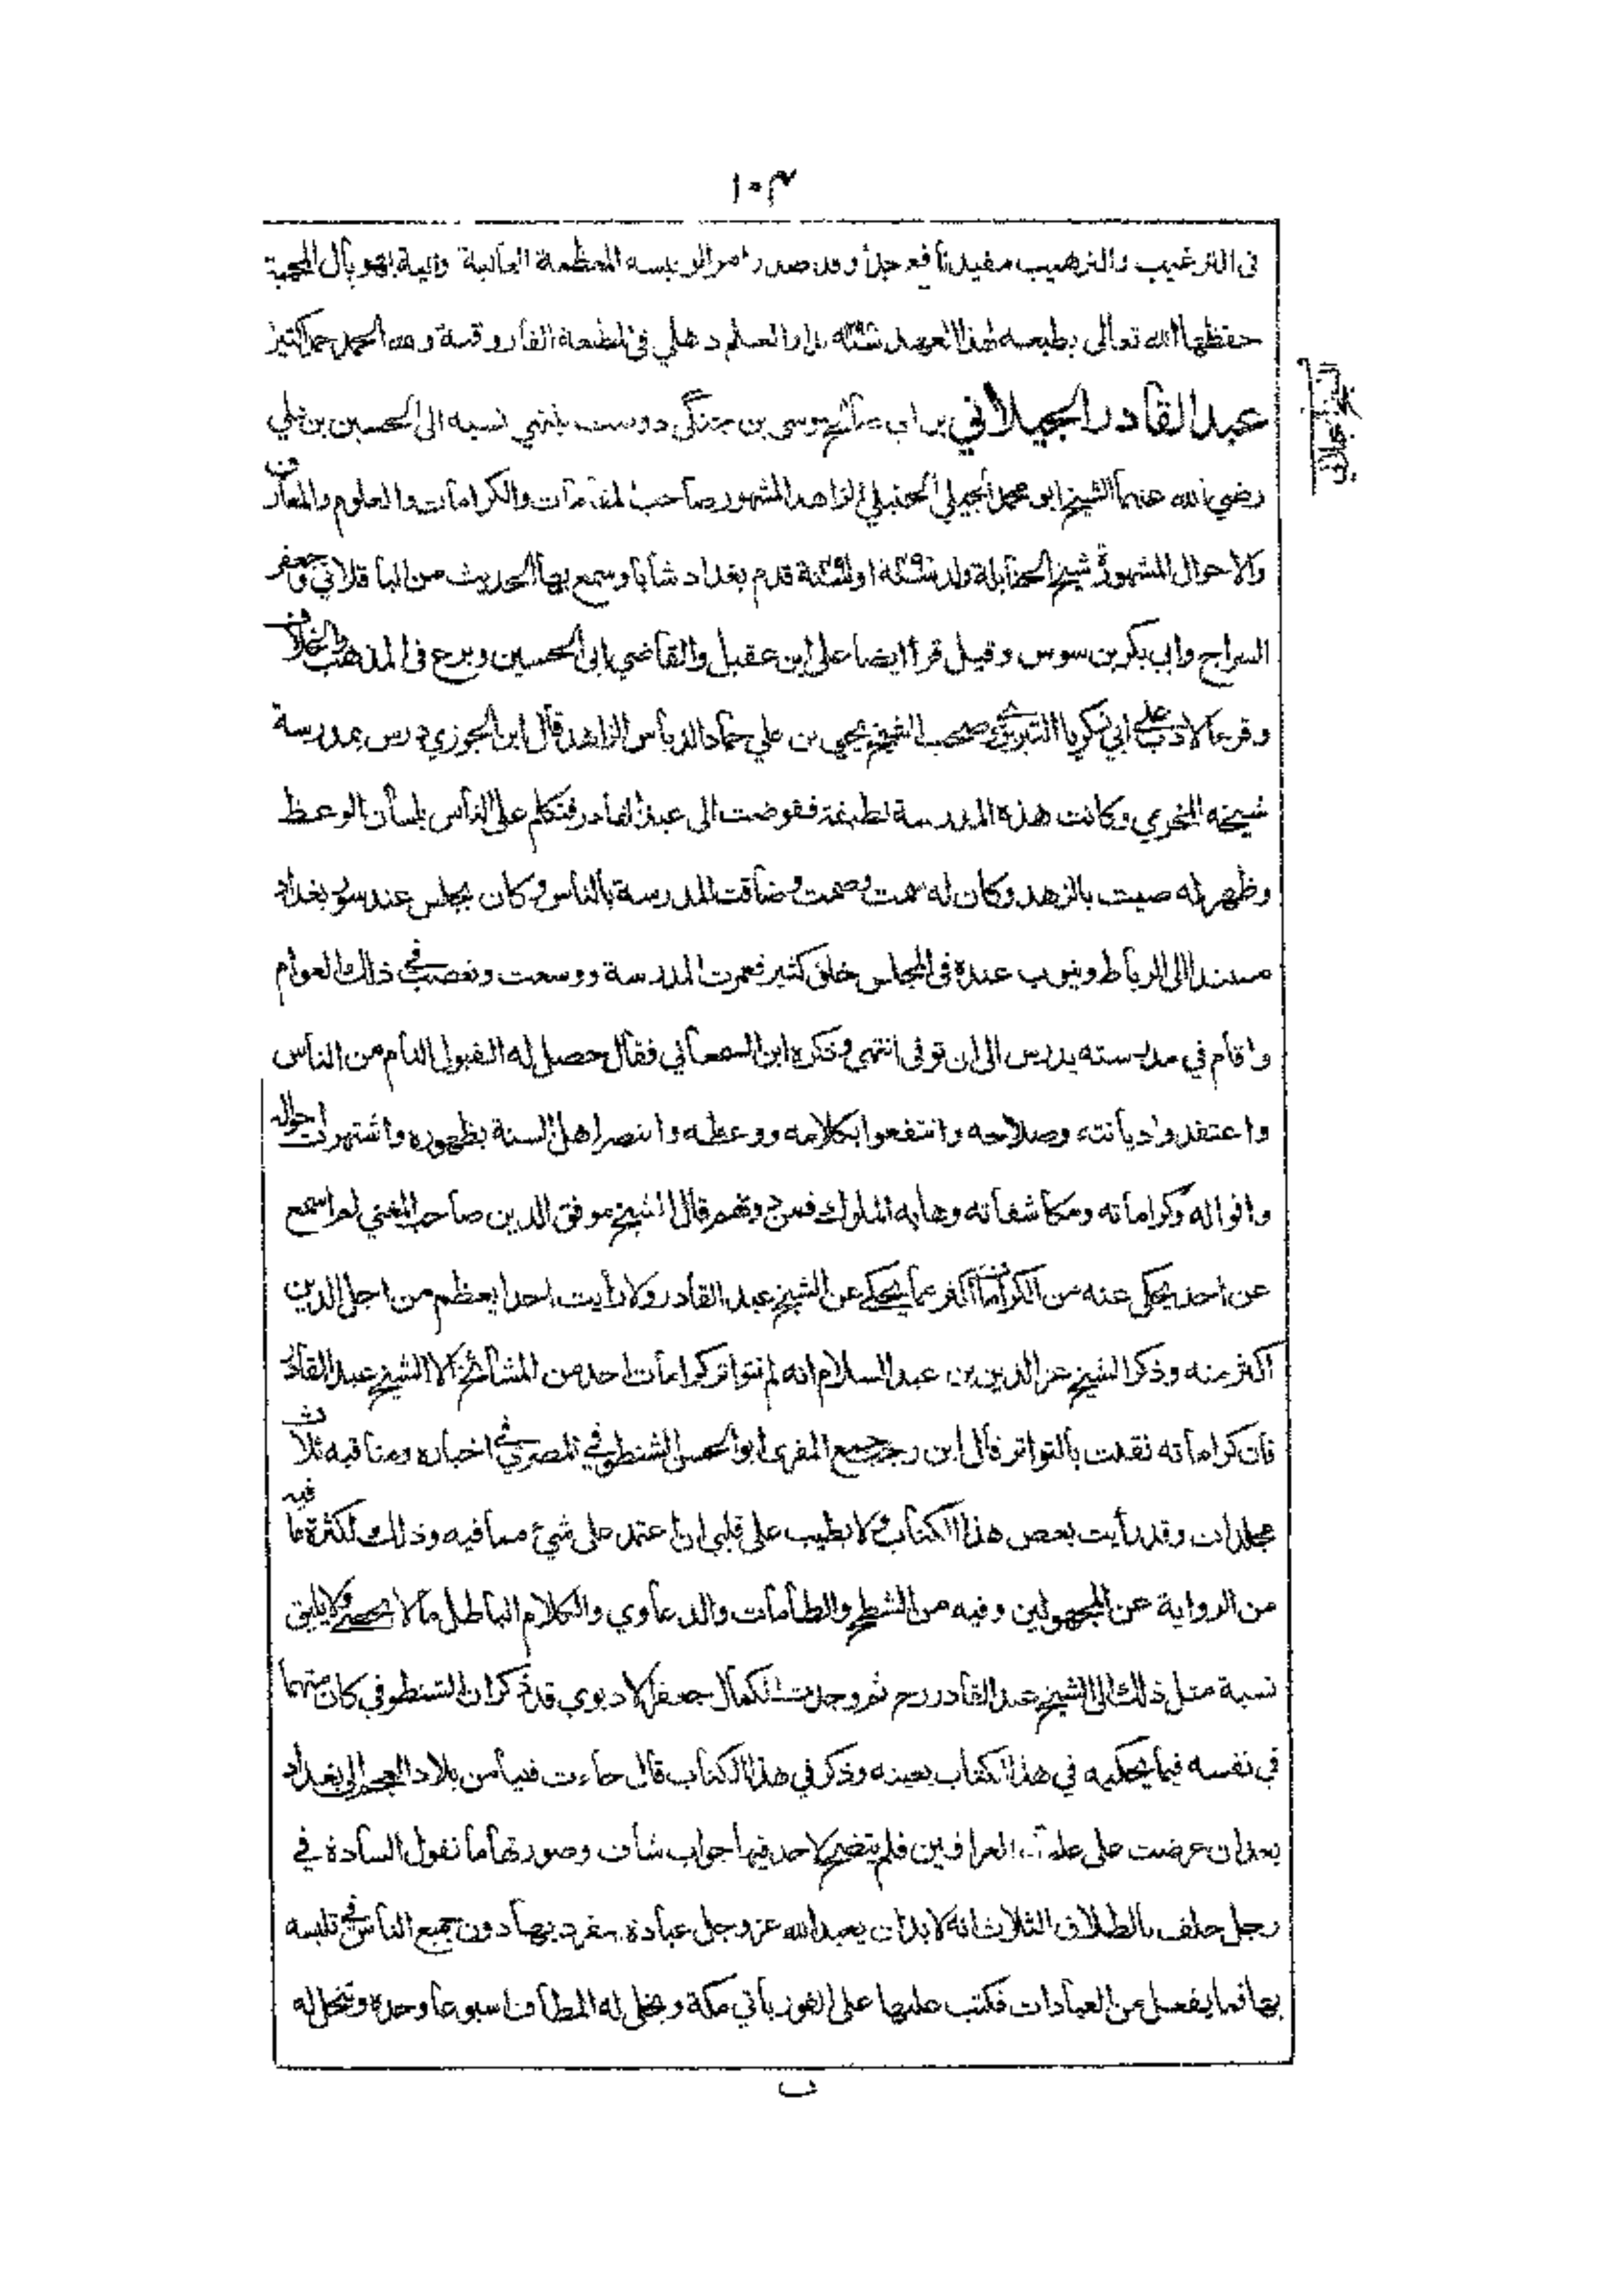 ١٠٣
فى الترغيب والترهيب مفيد نافع جدا وقد صدر امر الرئيسة المعظمة العالية والية بهوپال المحمية
حفظها الله تعالى بطبعه لهذا العهد بدار العلم دهلي فى المطبعة الفاروقية ولله الحمد حمدا كثيرا
الشيخ عبد القادر الجيلاني
عبد القادر الجيلاني بن ابي صالح موسى بن جنگى دوست ينتهي نسبه الى الحسين بن علي
رضي الله عنهما الشيخ ابو محمد الجيلي الحنبلي الزاهد المشهور صاحب المقامات والكرامات والعلوم والمعارف
والاحوال المشهورة شيخ الحنابلة ولد سنة او سنة قدم بغداد شابا وسمع بها الحديث من الباقلاني وجعفر
السراج وابي بكر بن سوس وقيل قرأ ايضا على ابن عقيل والقاضي ابى الحسين وبرع فى المذهب والخلاف
وقرء الادب على ابي زكريا التبريزي وصحب الشيخ يحيى بن علي حماد الدباس الزاهد قال ابن الجوزي درس بمدرسة
شيخه المخرمي وكانت هذه المدرسة لطيفة ففوضت الى عبد القادر فتكلم على الناس بلسان الوعظ
وظهر له صيت بالزهد وكان له سمت وصمت وضاقت المدرسة بالناس وكان يجلس عند سور بغداد
مستندا الى الرباط ويتوب عنده فى المجلس خلق كثير فعمرت المدرسة ووسعت وتعصب في ذلك العوام
واقام في مدرسته يدرس الى ان توفى انتهى وذكره ابن السمعاني فقال حصل له القبول التام من الناس
واعتقدوا ديانته وصلاحه وانتفعوا بكلامه ووعظه وانتصر اهل السنة بظهوره واشتهرت احواله
واقواله وكراماته ومكاشفاته وهابه الملوك فمن دونهم قال الشيخ موفق الدين صاحب المغني لم اسمع
عن احد يحكى عنه من الكرامات اكثر مما يحكى عن الشيخ عبد القادر ولا رأيت احدا يعظم من اجل الدين
اكثر منه وذكر الشيخ عز الدين بن عبد السلام انه لم تتواتر كرامات احد من المشائخ الا الشيخ عبد القادر
فان كراماته نقلت بالتواتر قال ابن رجب جمع المقرى ابو الحسن الشنطوفي المصري في اخباره ومناقبه ثلاث
مجلدات وقد رأيت بعض هذا الكتاب ولا يطيب على قلبي ان اعتمد على شيئ مما فيه وذلك لكثرة ما فيه
من الرواية عن المجهولين وفيه من الشطح والطامات والدعاوي والكلام الباطل ما لا يحصى ولا يليق
نسبة مثل ذلك الى الشيخ عبد القادر رح ثم وجدت الكمال جعفر الادبوي قد ذكر ان الشنطوفي كان متهما
في نفسه فيما يحكيه في هذا الكتاب بعينه وذكر في هذا الكتاب قال جاءت فتيا من بلاد العجم الى بغداد
بعد ان عرضت على علماء العراقين فلم يتضح لاحد فيها جواب شاف وصورتها ما تقول السادة في
رجل حلف بالطلاق الثلاث انه لا بد ان يعبد الله عز وجل عبادة ينفرد بها دون جميع الناس في تلبسه
بها فما يفعل من العبادات فكتب عليها على الفور يأتي مكة ويخلى له المطاف اسبوعا وحده وتنحل له
ب